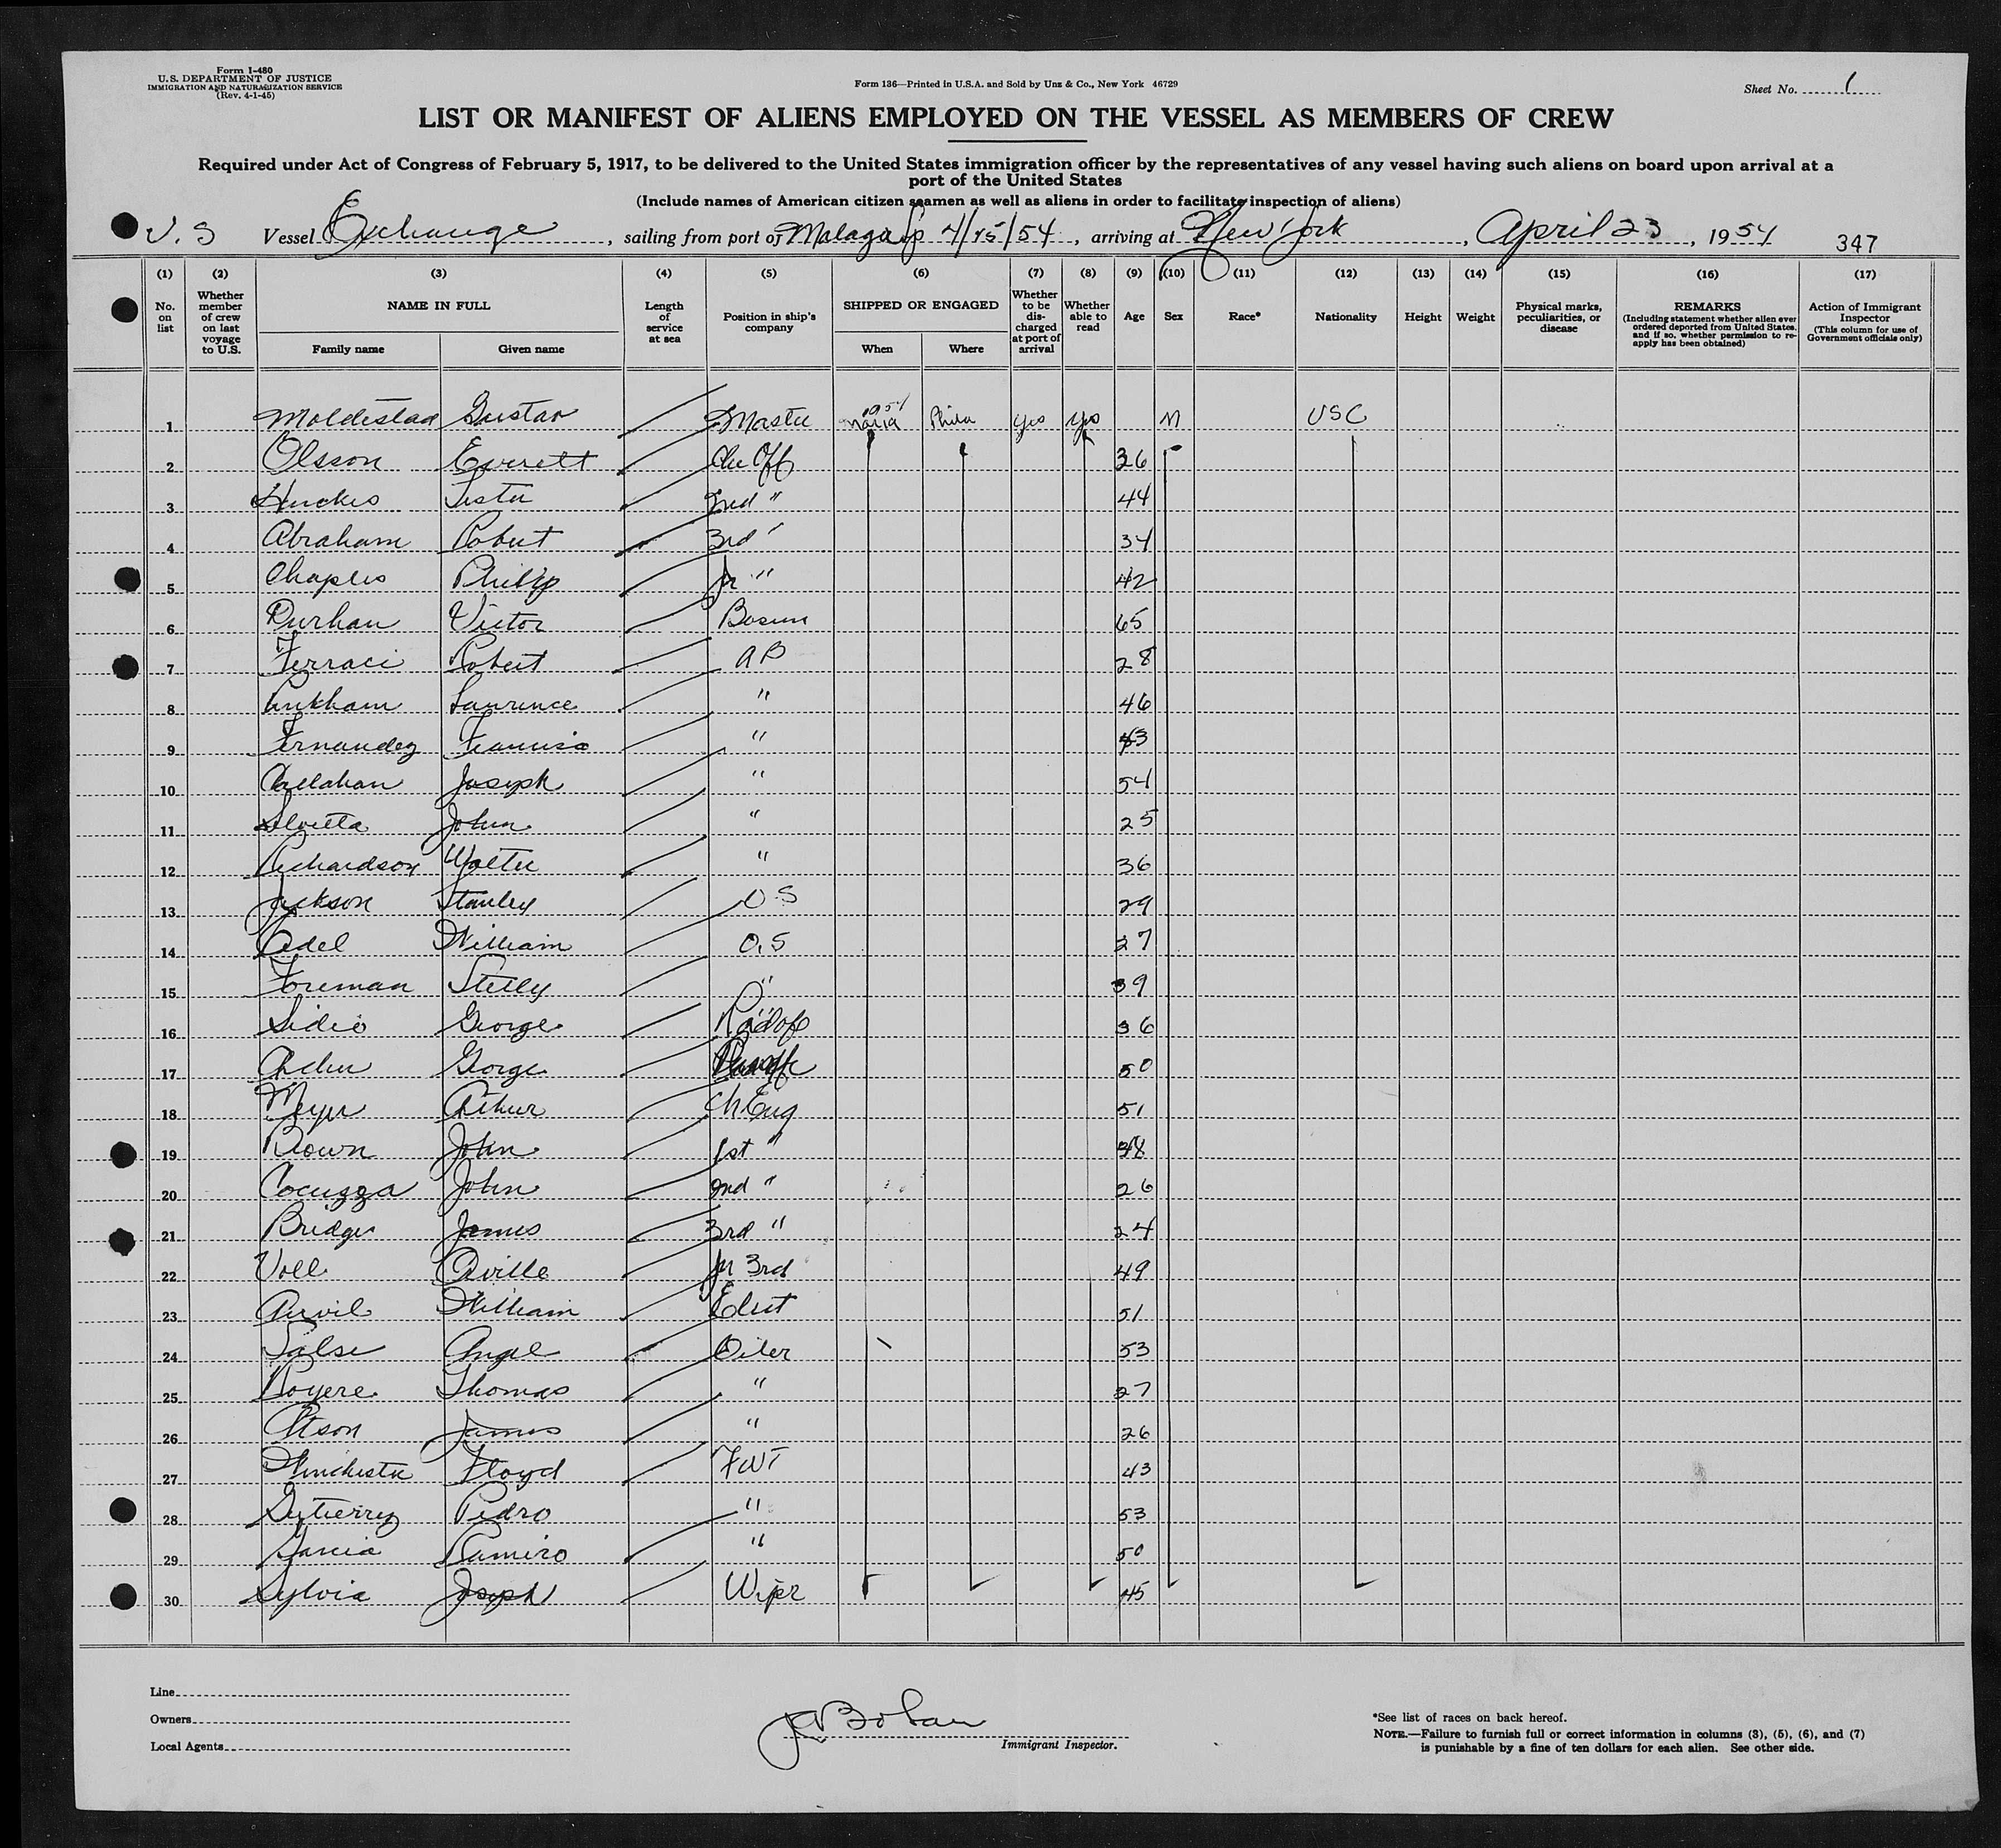 Form I-480
U.S. DEPARTMENT OF JUSTICE
IMMIGRATION AND NATURALIZATION SERVICE
(Rev. 4-1-45)
Form 136—Printed in U.S.A. and Sold by Unz & Co., New York 46729
Sheet No. 1
LIST OR MANIFEST OF ALIENS EMPLOYED ON THE VESSEL AS MEMBERS OF CREW
Required under Act of Congress of February 5, 1917, to be delivered to the United States immigration officer by the representatives of any vessel having such aliens on board upon arrival at a
port of the United States
(Include names of American citizen seamen as well as aliens in order to facilitate inspection of aliens)
U.S Vessel Exchange, sailing from port of Malaga Sp 4/15/54, arriving at New York, April 23, 1954 347
(1) (2) (3) (4) (5) (6) (7) (8) (9) (10) (11) (12) (13) (14) (15) (16) (17)
No. on list
Whether member of crew on last voyage to U.S.
NAME IN FULL
Family name Given name
Length of service at sea
Position in ship's company
SHIPPED OR ENGAGED
When Where
Whether to be discharged at port of arrival
Whether able to read
Age
Sex
Race*
Nationality
Height
Weight
Physical marks, peculiarities, or disease
REMARKS
(Including statement whether alien ever ordered deported from United States, and if so, whether permission to re-apply has been obtained)
Action of Immigrant Inspector
(This column for use of Government officials only)
1 Moldestad Gustav Master 1954 Phila Yes Yes M USC
2 Olsson Everett Che Off 36
3 Huckes Lester 2nd " 44
4 Abraham Robert 3rd " 34
5 Chaples Philip Jr " 42
6 Durhan Victor Bosun 65
7 Ferraci Robert AB 28
8 Pinkham Laurence " 46
9 Fernandez Francisco " 43
10 Callahan Joseph " 54
11 John " 25
12 Richardson Walter " 36
13 Jackson Stanley O.S 29
14 Adel William O.S 27
15 Foreman Steely " 39
16 George Rad Off 36
17 George 50
18 Meyer Arthur Ch Eng 51
19 Brown John 1st " 38
20 Cocuzza John 2nd " 26
21 Bridges James 3rd " 24
22 Voll Orville Jr 3rd 49
23 William Elect 51
24 Angel Oiler 53
25 Royere Thomas " 27
26 James " 26
27 Winchester Floyd FWT 43
28 Gutierrez Pedro " 53
29 Garcia Ramiro " 50
30 Sylvia Joseph Wiper 45
Line
Owners
Local Agents
Immigrant Inspector.
*See list of races on back hereof.
NOTE.—Failure to furnish full or correct information in columns (3), (5), (6), and (7)
is punishable by a fine of ten dollars for each alien. See other side.